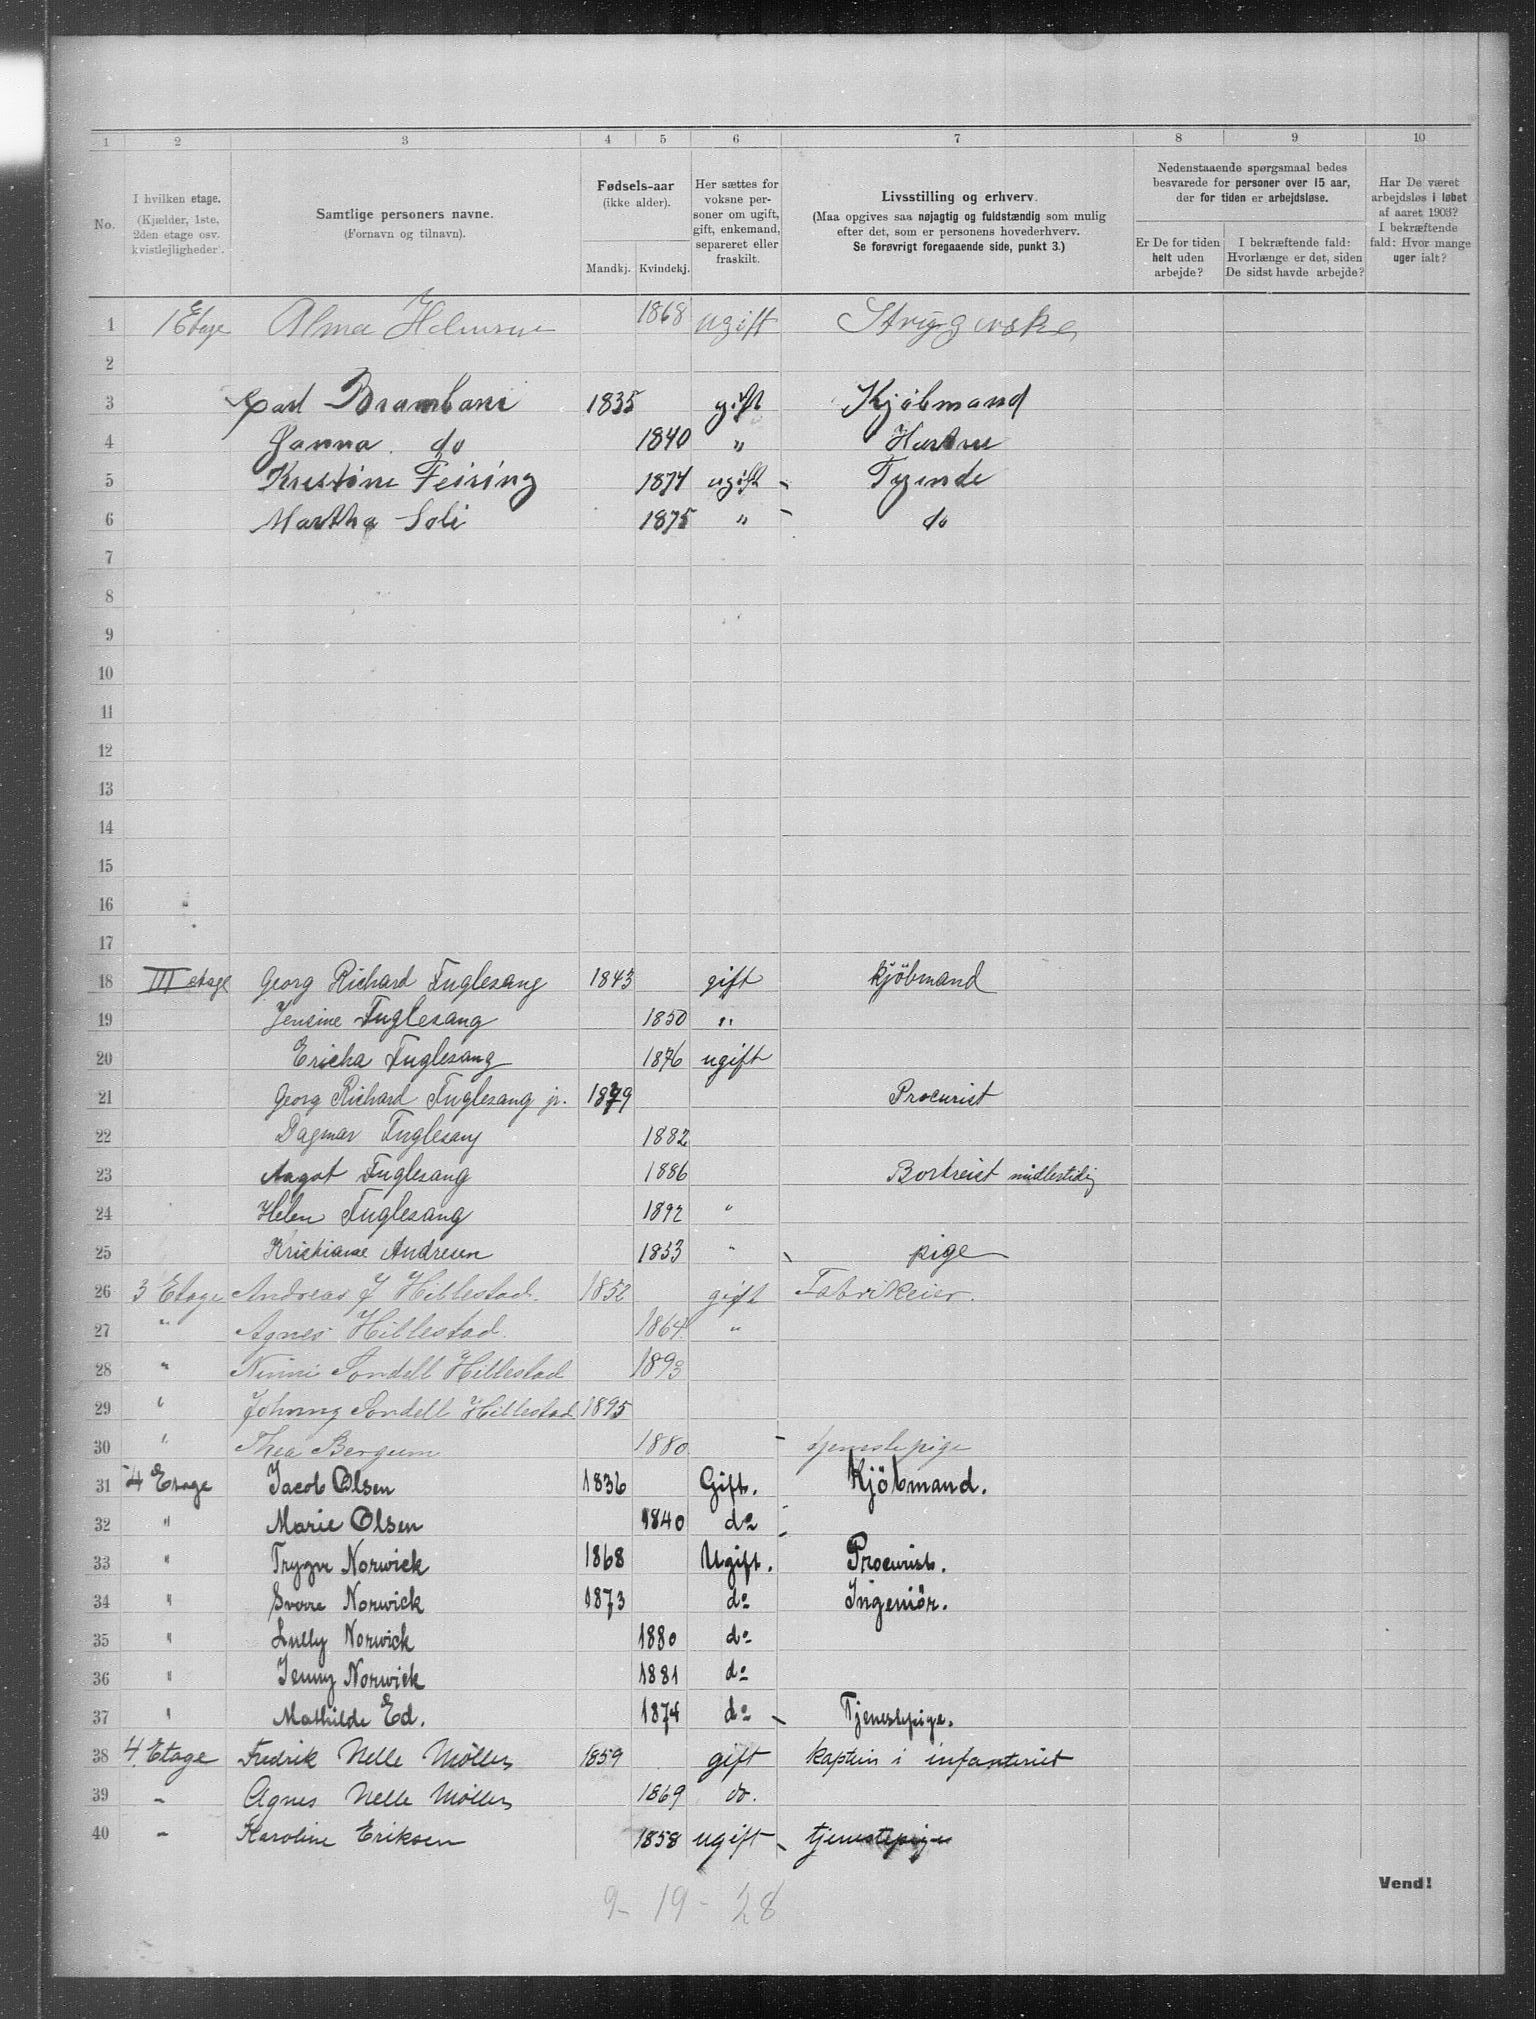 1 2 3 4 5 6 7 8 9 10
No.
I hvilken etage.
(Kjælder, 1ste,
2den etage osv.
kvistlejligheder).
Samtlige personers navne.
(Fornavn og tilnavn).
Fødsels-aar
(ikke alder).
Mandkj. Kvindekj.
Her sættes for
voksne per-
soner om ugift,
gift, enkemand,
separeret eller
fraskilt.
Livsstilling og erhverv.
(Maa opgives saa nøjagtig og fuldstændig som mulig
efter det, som er personens hovederhverv.
Se forøvrigt foregaaende side, punkt 3.)
Nedenstaaende spørgsmaal bedes
besvarede for personer over 15 aar,
der for tiden er arbejdsløse.
Er De for tiden
helt uden
arbejde?
I bekræftende fald:
Hvorlænge er det, siden
De sidst havde arbejde?
Har De været
arbejdsløs i løbet
af aaret 1903?
I bekræftende
fald: Hvor mange
uger ialt?
1 1 Etage Alma 1868 ugift
2
3 Carl 1835 gift Kjøbmand
4 Hanna do 1840 " Hustru
5 Kristine Feiring 1874 ugift - Tyende
6 Martha Soli 1875 " - do
7
8
9
10
11
12
13
14
15
16
17
18 III etage Georg Richard Fuglesang 1843 gift kjöbmand
19 Jensine Fuglesang 1850 "
20 Ericka Fuglesang 1876 ugift
21 Georg Richard Fuglesang jr. 1879 Procurist
22 Dagmar Fuglesang 1882
23 Aagot Fuglesang 1886 Bortreist midlertidig
24 Helen Fuglesang 1892 "
25 Kristiane Andresen 1853 " pige
26 3 Etage Andreas J Hillestad. 1852 gift Fabrikeier.
27 " Agnes Hillestad. 1864 "
28 " Ninni Sondell Hillestad 1893
29 " Johnny Sondell Hillestad 1895
30 " Thea Bergum 1880 - tjenestepige
31 4 Etage Jacob Olsen 1836 Gift. Kjöbmand.
32 " Marie Olsen 1840 do
33 " Trygve Norwick 1868 Ugift. Procurist.
34 " Sverre Norwick 1873 do Ingeniör.
35 " Lully Norwick 1880 do
36 " Jenny Norwick 1881 do
37 " Mathilde Ed. 1874 do Tjenestepige.
38 4. Etage Fredrik Nelle Møller 1859 gift kaptein i infanteriet
39 - Agnes Nelle Møller 1869 do.
40 - Karoline Eriksen 1858 ugift tjenestepige
Vend!
9 - 19 - 28